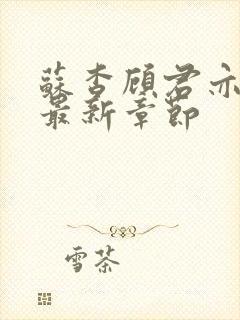 蘇杏顾君亦
最新章節
雪茶